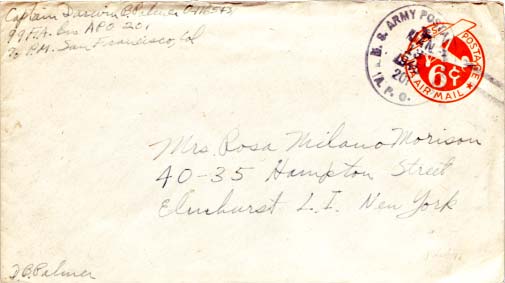 Captain Darwin C. Palmer
99 F.A. Bn APO 201
To P.M. San Francisco, Cal
U.S. ARMY POSTAL
A.P.O.
201
POSTAGE
6¢
AIR MAIL
Mrs. Rosa Milano Morison
40-35 Hampton Street
Elmhurst L.I. New York
D.C. Palmer